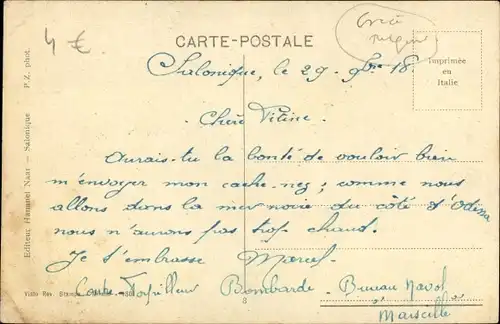 4 €
Grèce
CARTE-POSTALE
Imprimée
en
Italie
Salonique, le 29 9bre 18.
Chère Titine.
Aurais-tu la bonté de vouloir bien
m'envoyer mon cache-nez; comme nous
allons dans la mer noire du côté d'Odessa
nous n'aurons pas trop chaud.
Je t'embrasse Marcel.
Contre-Torpilleur Bombarde. Bureau Naval
à Marseille
Editeur Hananel Naar — Salonique P. Z. phot.
Visto Rev. Stampa
8